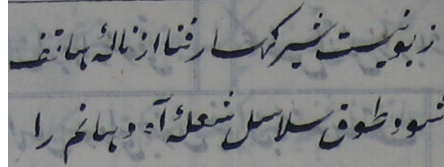 زبونیست شیر کهسار فنا از نالهٔ هاتف
شود طوق سلاسل شعلهٔ آه و هانم را